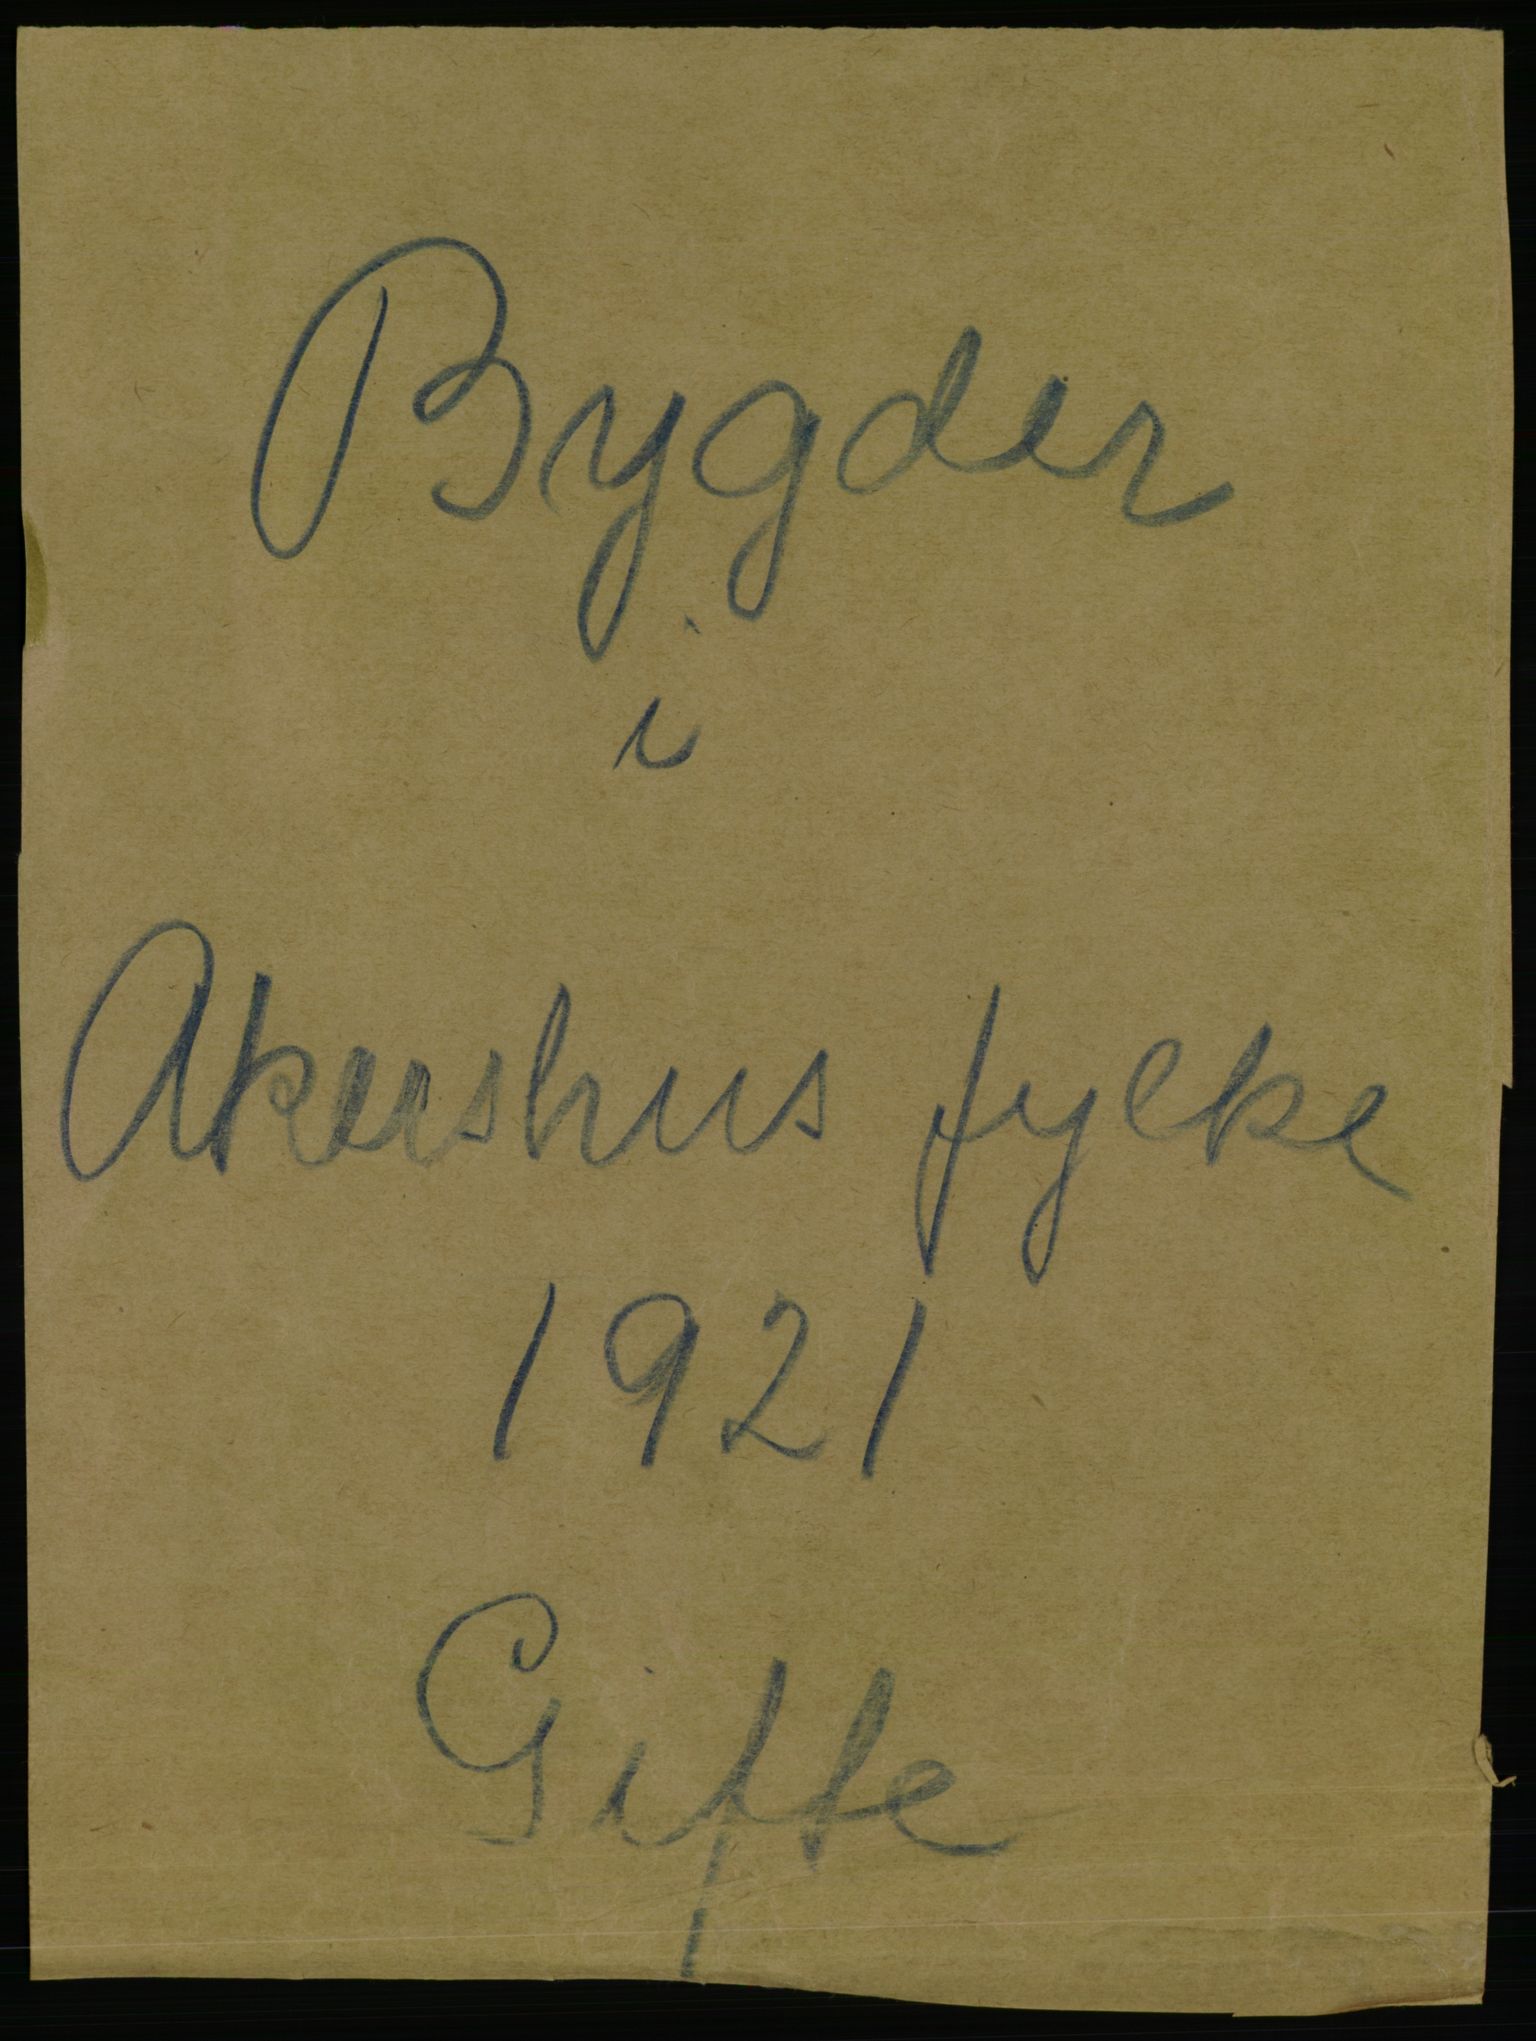 Bygder
i
Akershus fylke
1921
Gifte